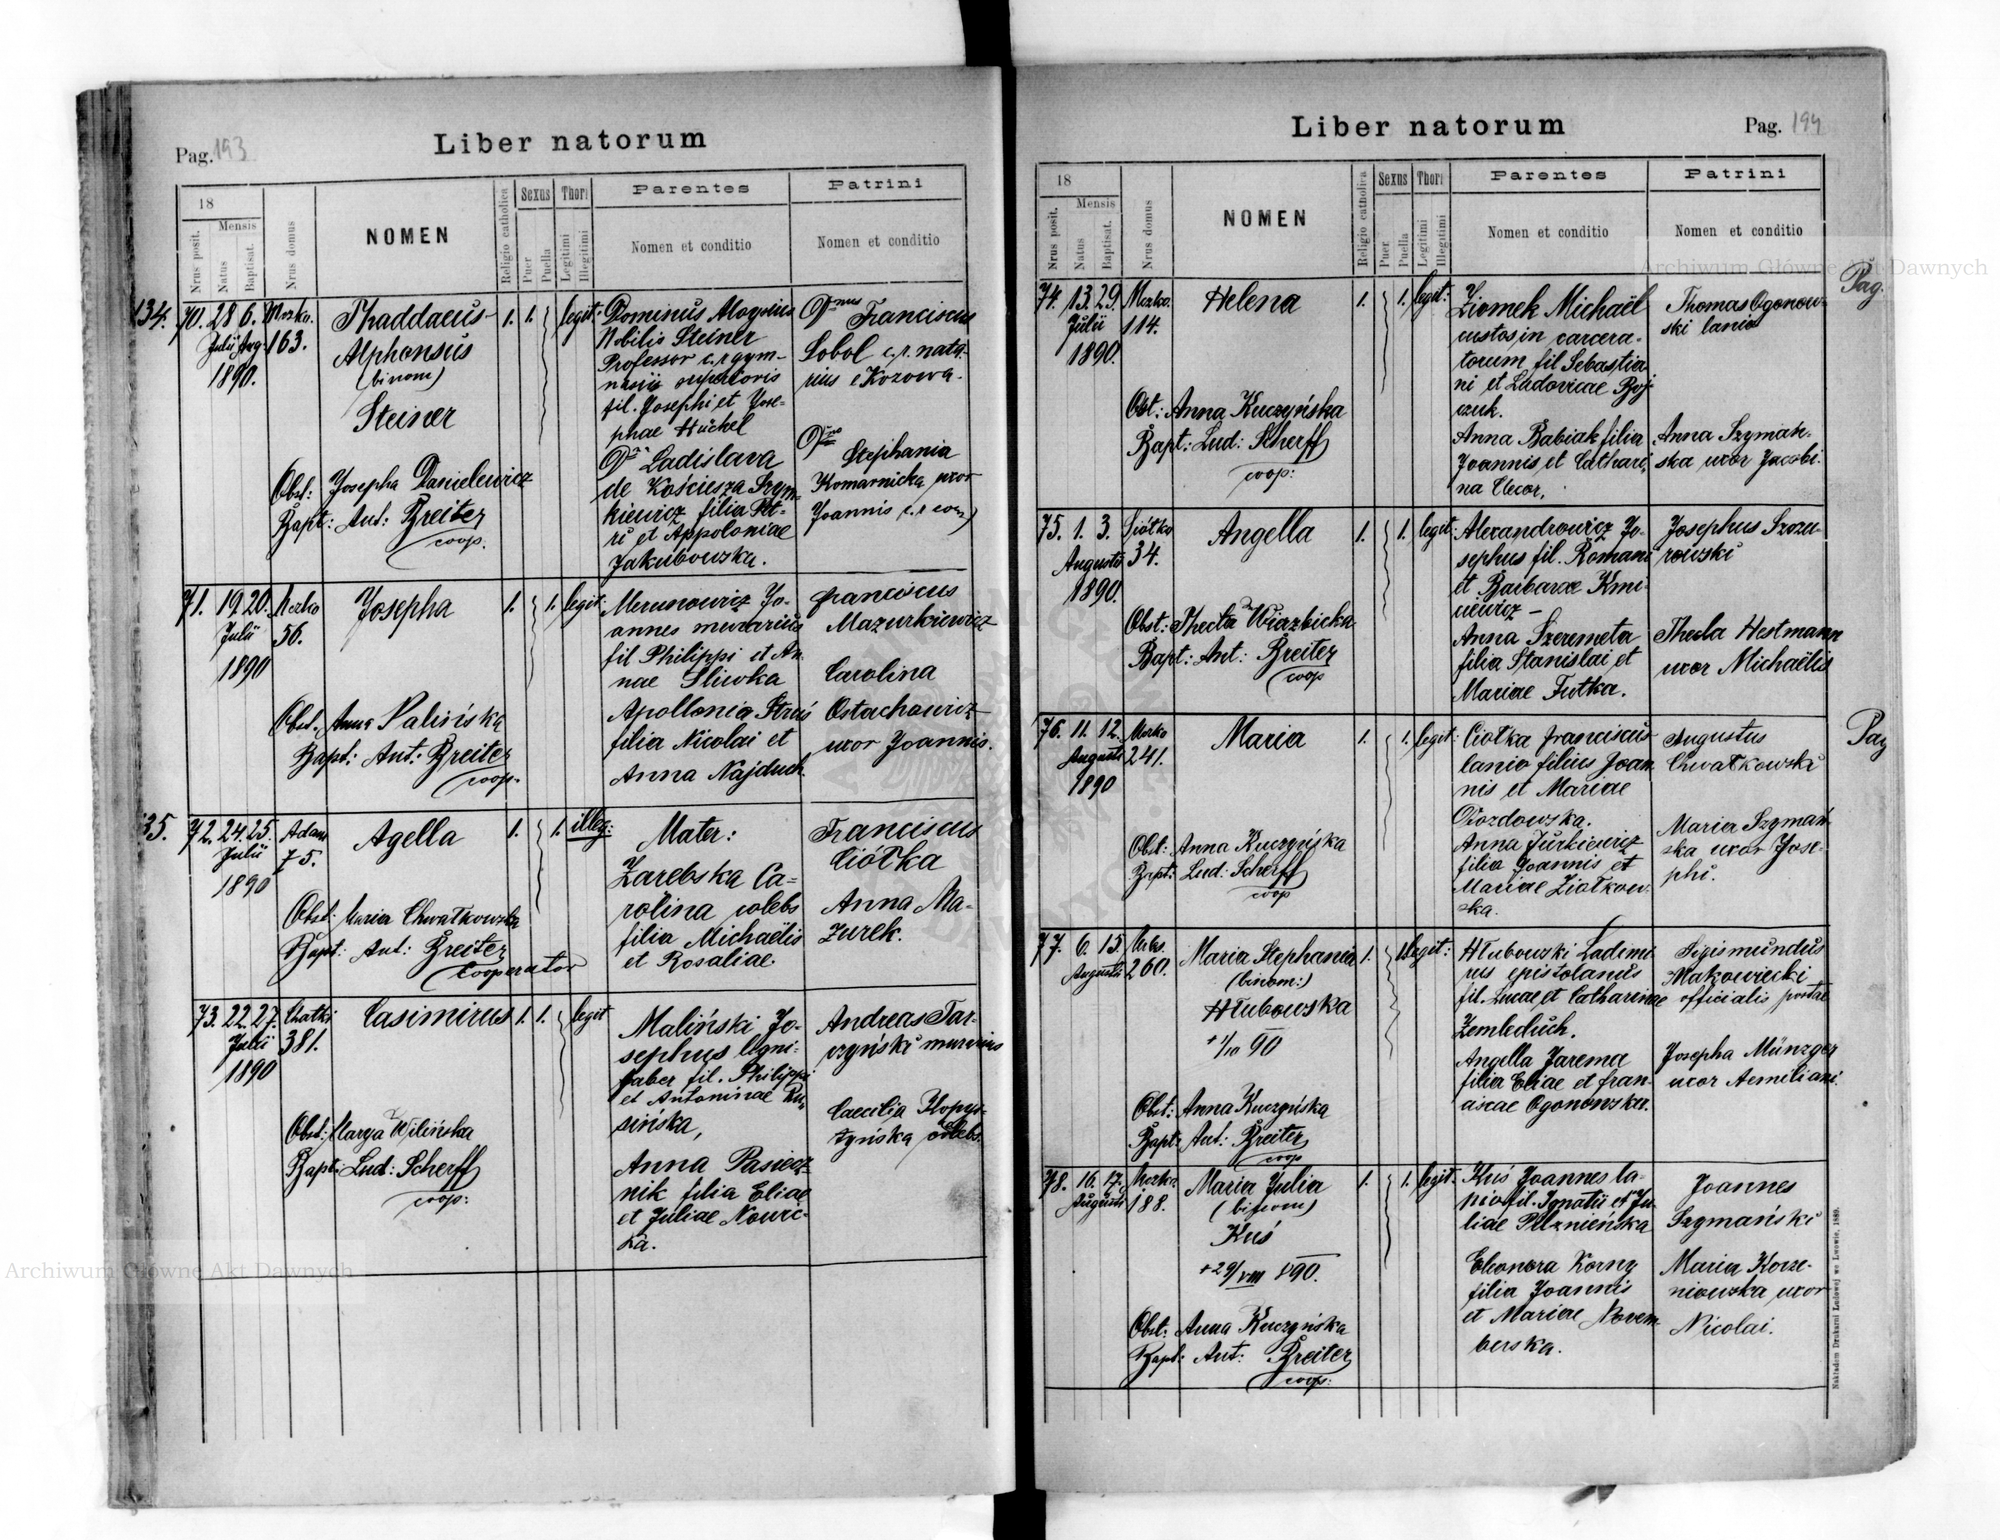 Pag. 193
Liber natorum
18
Mensis
Nrus posit.
Natus
Baptisat.
Nrus domus
NOMEN
Religio catholica
Sexus
Puer
Puella
Thori
Legitimi
Illegitimi
Parentes
Nomen et conditio
Patrini
Nomen et conditio
134.
70. 28 6.
Julii Aug.
1890.
163.
Thaddaeus
Alphonsus
(binom)
Steiner
1. 1. legit:
Obst: Josepha Danielewicz
Bapt: Ant: Breiter
coop.
Dominus Aloysius
Nobilis Steiner
Professor c. r gym-
nasii superioris
fil. Josephi et Jose-
phae Hückel
Ladislava
de Kościesza Szym-
kiewicz filia Pet-
ri et Appoloniae
Jakubowska.
Dnus Franciscus
Sobol c. r. nota-
rius e Kozowa.
Stephania
Komarnicka uxor
Joannis
71. 19. 20.
Julii
1890
56.
Josepha
1. 1. legit:
Obst: Anna Palińska
Bapt: Ant: Breiter
coop.
Merunowicz Jo-
annes murarius
fil Philippi et An-
nae Sliwka
Apollonia Struś
filia Nicolai et
Anna Najduch.
Franciscus
Mazurkiewicz
Carolina
Ostachowicz
uxor Joannis.
35.
72. 24. 25.
Julii
1890
Adam
75.
Agella
1. 1. illeg:
Obst: Maria Chwatkowska
Bapt: Ant: Breiter
Cooperator
Mater:
Zarebska Ca-
rolina coelebs
filia Michaëlis
et Rosaliae.
Franciscus
Ciótka
Anna Ma-
zurek.
73. 22. 27.
Julii
1890
Chatki
381.
Casimirus
1. 1. legit
Obst: Marya Wilińska
Bapt: Lud: Scherff
coop:
Maliński Jo-
sephus ligni-
faber fil. Philippi
et Antoninae Ru-
sińska,
Anna Pasiecz-
nik filia Eliae
et Juliae Nowic-
ka.
Andreas Tar-
czyński murarius
Caecilia Kopys-
tyńska coelebs.
Liber natorum
Pag. 194
18
Mensis
Nrus posit.
Natus
Baptisat.
Nrus domus
NOMEN
Religio catholica
Sexus
Puer
Puella
Thori
Legitimi
Illegitimi
Parentes
Nomen et conditio
Patrini
Nomen et conditio
Pag.
74. 13. 29.
Julii
1890.
114.
Helena
1. 1. legit:
Obst: Anna Kuczyńska
Bapt: Lud: Scherff
coop:
Ziomek Michaël
custos in carcera-
torum fil Sebastia-
ni et Ludovicae Boj-
czuk.
Anna Babiak filia
Joannis et Cathari-
na
Thomas Ogonow-
ski lanio
Anna Szymań-
ska uxor Jacobi.
75. 1. 3.
Augusti
1890.
34.
Angella
1. 1. legit:
Obst: Thecla Wiazbicka
Bapt: Ant: Breiter
coop
Alexandrowicz Jo-
sephus fil. Romani
et Barbarae Kmi-
ciewicz –
Anna Szeremeta
filia Stanislai et
Mariae Futka.
Josephus Szczu-
rowski
Thecla Hestmann
uxor Michaëlis
Pag
76. 11. 12.
Augusti
1890
241.
Maria
1. 1. legit:
Obst: Anna Kuczyńska
Bapt: Lud: Scherff
coop
Ciotka Franciscus
lanio filius Joan-
nis et Mariae
Anna Jurkiewicz
filia Joannis et
Mariae Ziotkow-
ska.
Augustus
Chwatkowski
Maria Szymań-
ska uxor Jose-
phi.
77. 6. 15.
Augusti
260.
Maria Stephania
(binom:)
Hłubowska
+ 1/10 90
1. 1. legit:
Obst: Anna Kuczyńska
Bapt: Ant: Breiter
coop
Hłubowski Lademi-
rus epistolanus
fil. Lucae et Catharinae
Zembeduch.
Angella Jarema
filia Eliae et Fran-
ciscae Ogonowska.
Sigismundus
Makowiecki
officialis postae
Josepha Münzger
uxor Aemiliani.
78. 16. 17.
Augusti
188.
Maria Julia
(binom)
Kuś
+29/VIII 890.
1. 1. legit:
Obst: Anna Kuczyńska
Bapt: Ant: Breiter
coop:
Kuś Joannes la-
nio fil. Ignatii et Ju-
liae Pilznieńska
Eleonora Korny
filia Joannis
et Mariae Novem-
berska.
Joannes
Szymański
Maria Korze-
niowska uxor
Nicolai.
Nakładem Drukarni Ludowej we Lwowie, 1889.
Archiwum Główne Akt Dawnych
Archiwum Główne Akt Dawnych